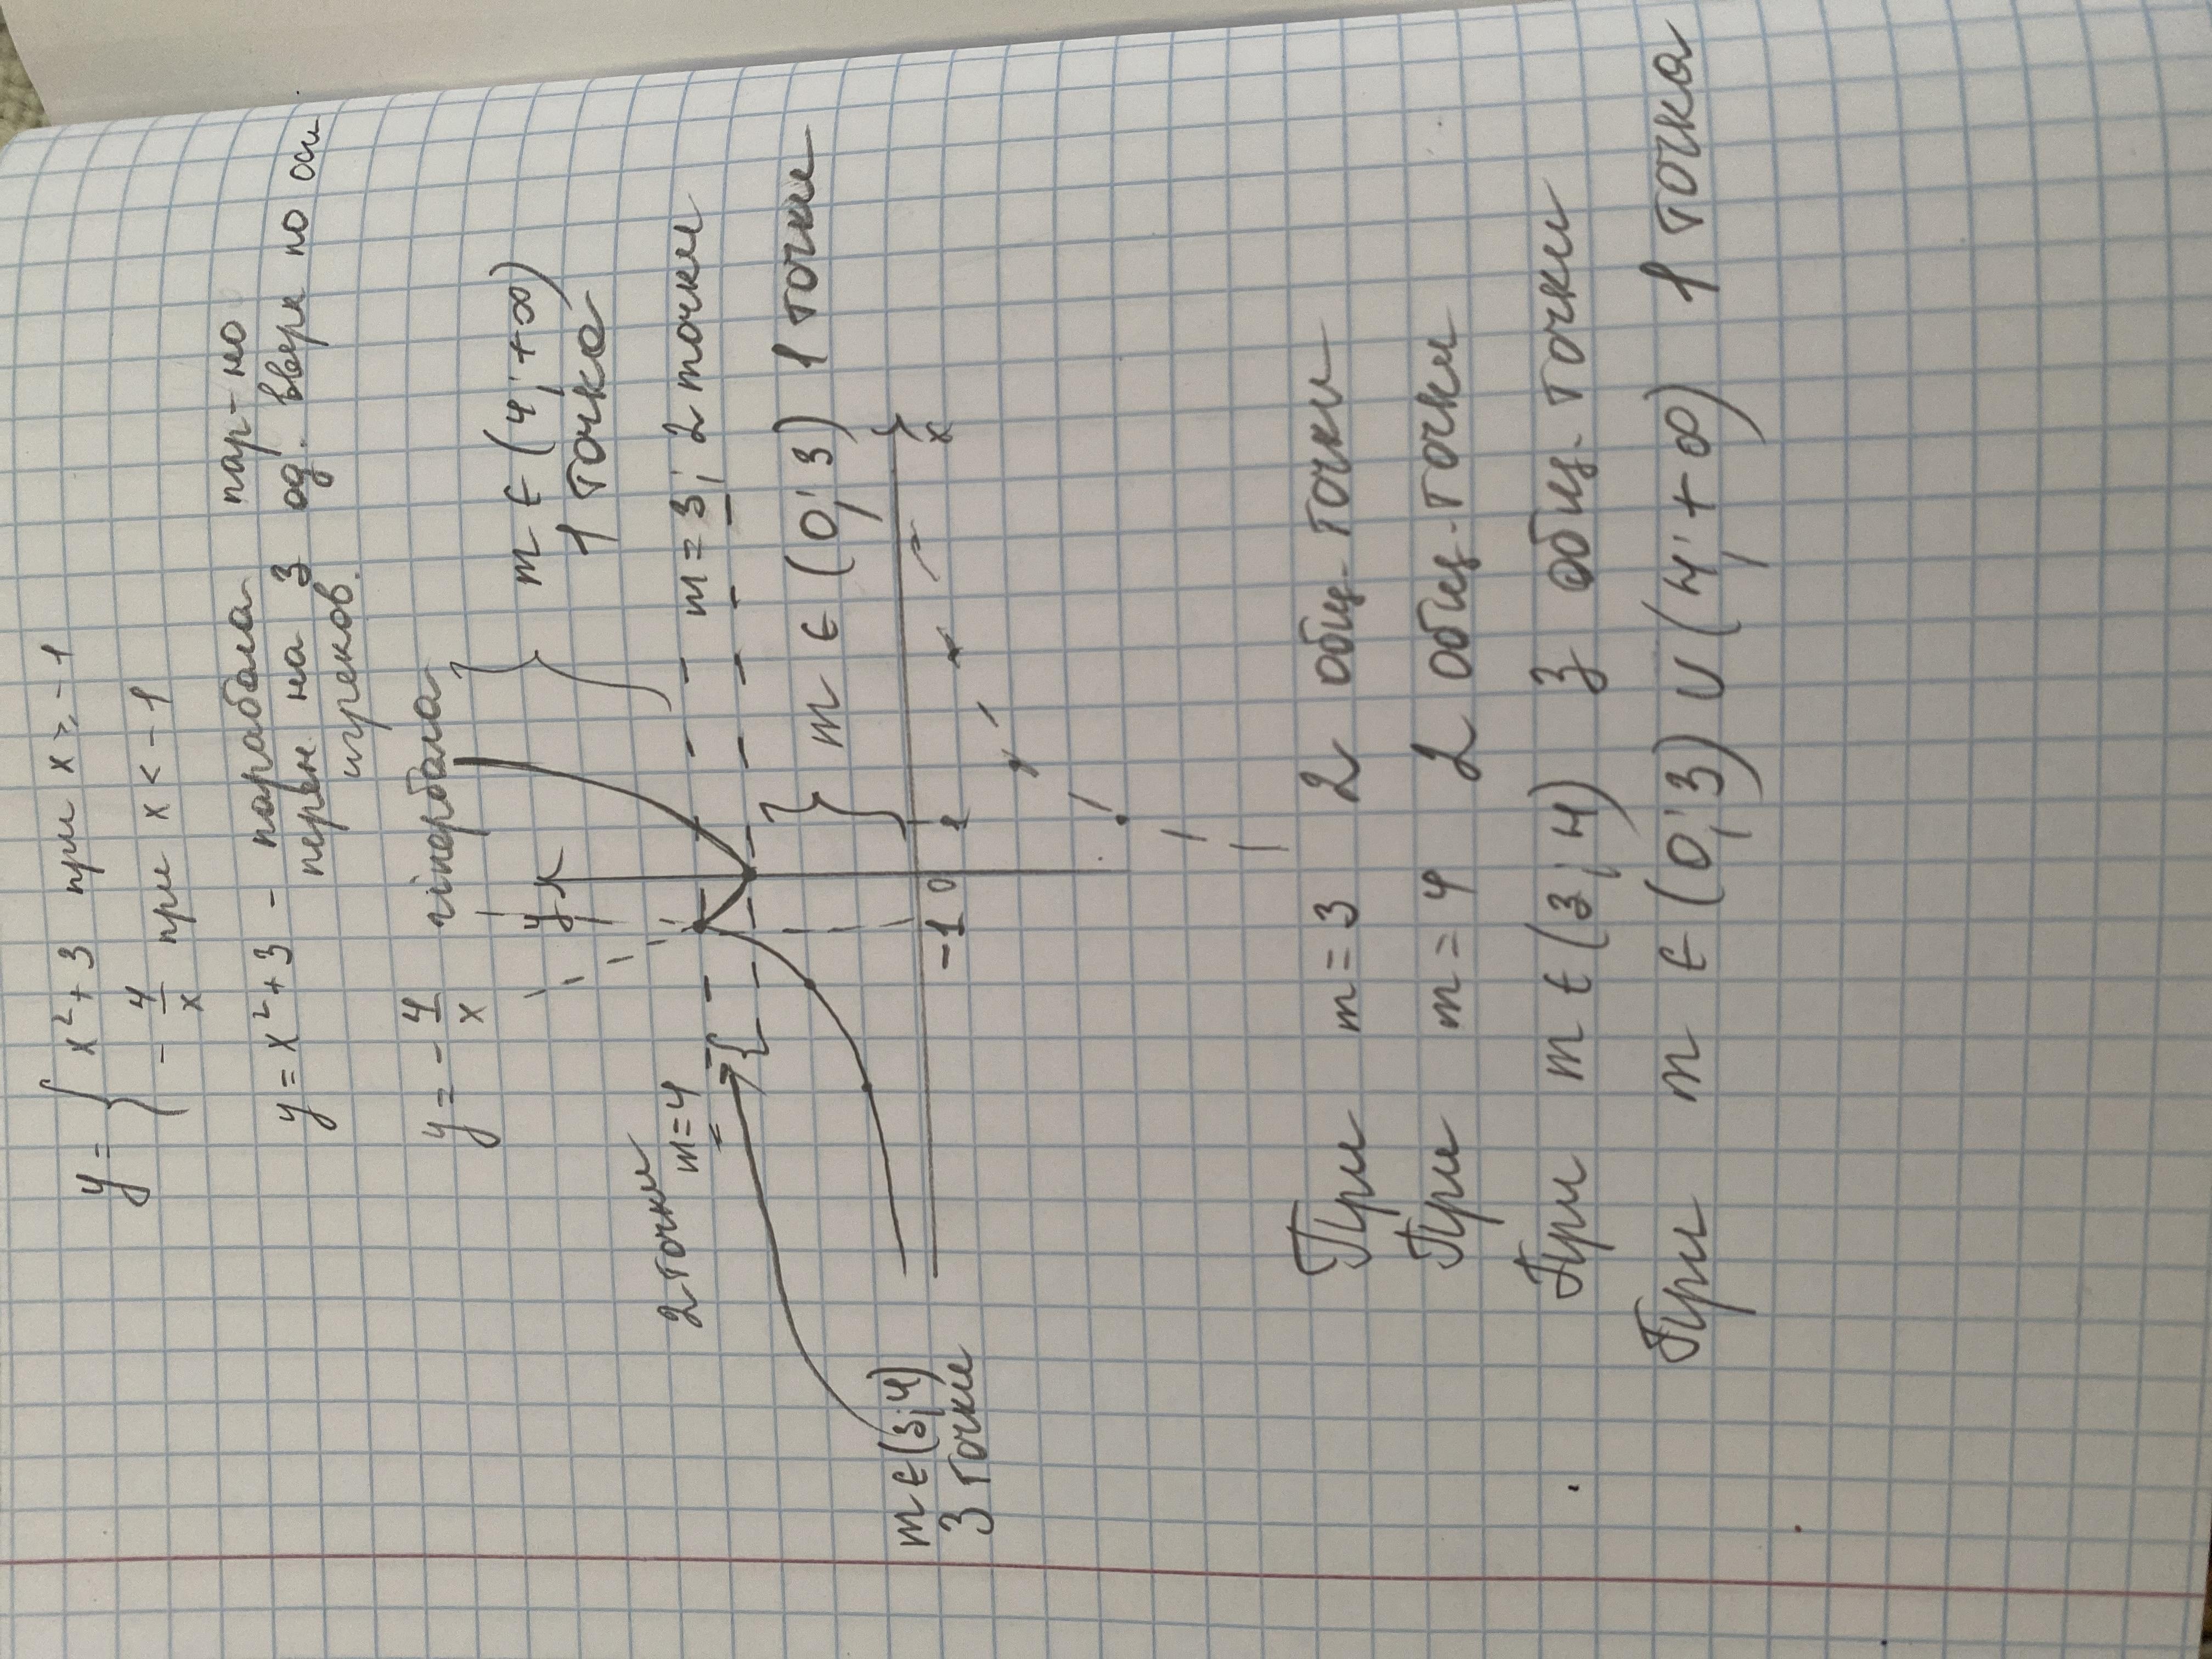 y = { x² + 3 при x ≥ -1
- 4/x при x < -1
y = x² + 3 - парабола пар-но
перен. на 3 ед. вверх по оси
игреков.
y = - 4/x гіпербола
y
m ∈ (4; +∞)
1 точка
2 точки
m = 4
m = 3; 2 точки
m ∈ (0; 3) 1 точки
m ∈ (3; 4)
3 точки
-1 0 1 x
При m = 3 2 общ. точки
При m = 4 2 общ. точки
При m ∈ (3; 4) 3 общ. точки
При m ∈ (0; 3) ∪ (4; +∞) 1 точка